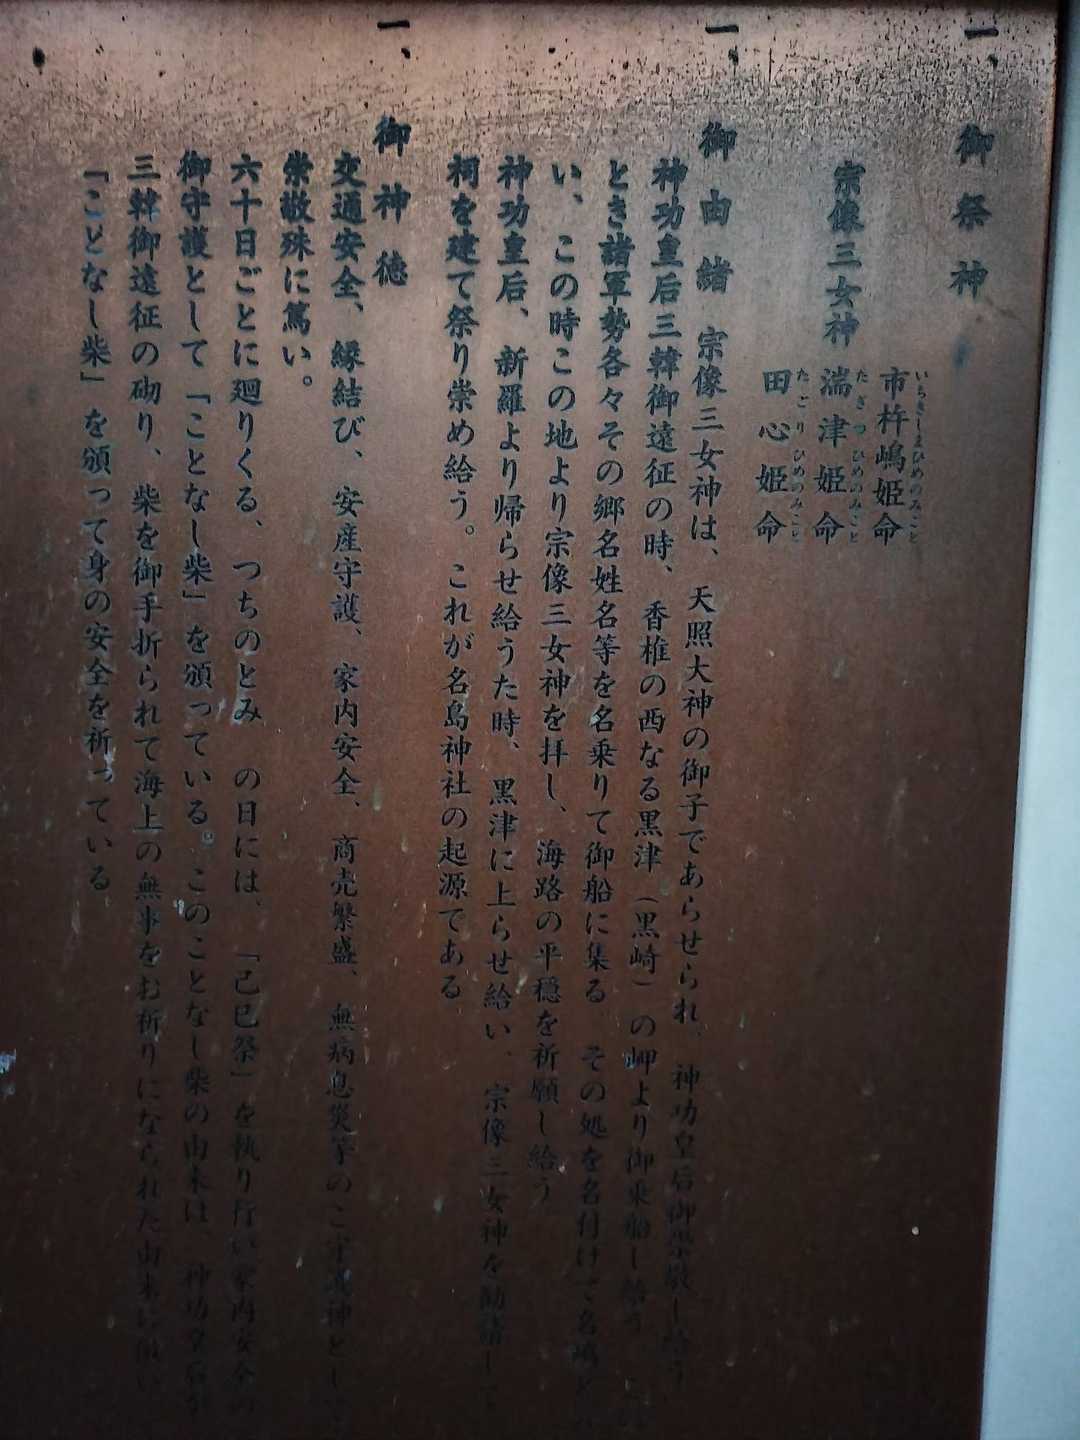 一、御祭神
市杵嶋姫命
いちきしまひめのみこと
宗像三女神 湍津姫命
たぎつひめのみこと
田心姫命
たごりひめのみこと
一、御由緒 宗像三女神は、天照大神の御子であらせられ、神功皇后御崇敬し給う
神功皇后三韓御遠征の時、香椎の西なる黒津（黒崎）の岬より御乗船し給う
とき諸軍勢各々その郷名姓名等を名乗りて御船に集る その処を名付けて名嶋と
い、この時この地より宗像三女神を拝し、海路の平穏を祈願し給う
神功皇后、新羅より帰らせ給うた時、黒津に上らせ給い、宗像三女神を勧請し
祠を建て祭り崇め給う。これが名島神社の起源である
一、御神徳
交通安全、縁結び、安産守護、家内安全、商売繁盛、無病息災等のご守護神として
崇敬殊に篤い。
六十日ごとに廻りくる、つちのとみ の日には、「己巳祭」を執り行い家内安全の
御守護として「ことなし柴」を頒っている。このことなし柴の由来は、神功皇后が
三韓御遠征の砌り、柴を御手折られて海上の無事をお祈りになられた由来に倣い
「ことなし柴」を頒って身の安全を祈っている